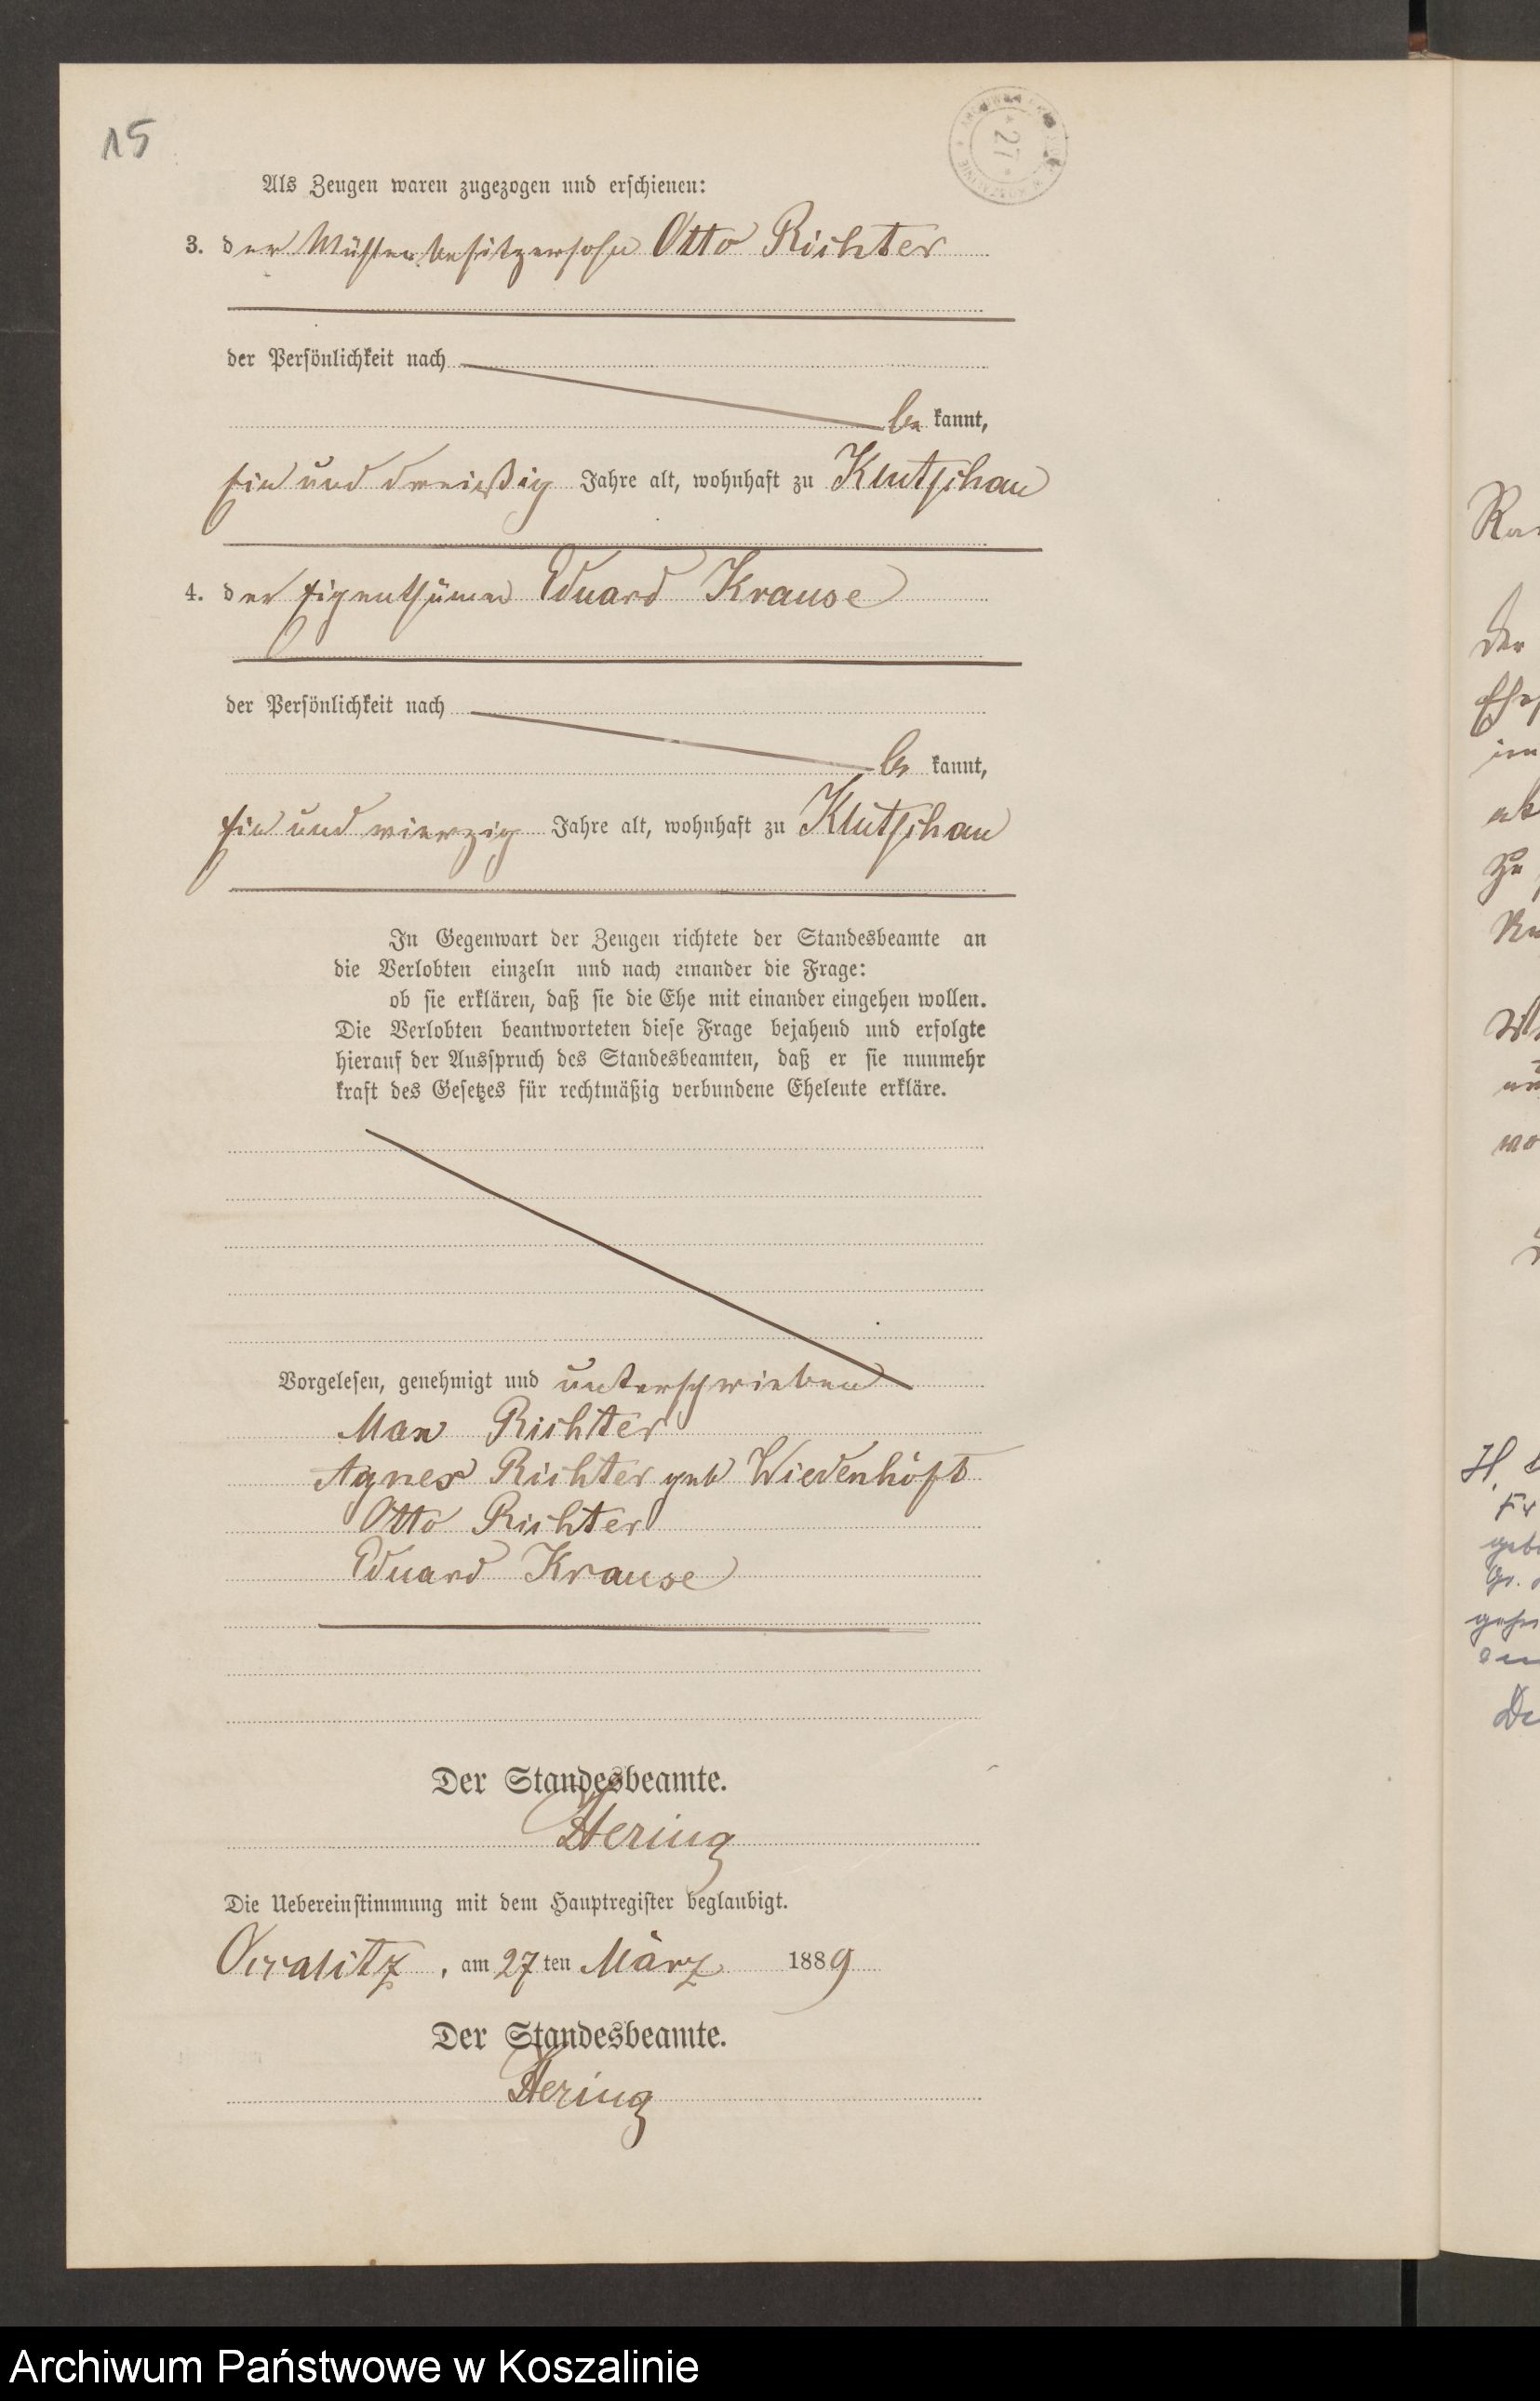 15
27
Als Zeugen waren zugezogen und erschienen:
3. der Mühlenbesitzersohn Otto Richter
der Persönlichkeit nach
be kannt,
ein und dreißig Jahre alt, wohnhaft zu Klutschau
4. der Eigenthümer Eduard Krause
der Persönlichkeit nach
be kannt,
ein und vierzig Jahre alt, wohnhaft zu Klutschau
In Gegenwart der Zeugen richtete der Standesbeamte an
die Verlobten einzeln und nach einander die Frage:
ob sie erklären, daß sie die Ehe mit einander eingehen wollen.
Die Verlobten beantworteten diese Frage bejahend und erfolgte
hierauf der Ausspruch des Standesbeamten, daß er sie nunmehr
kraft des Gesetzes für rechtmäßig verbundene Eheleute erkläre.
Vorgelesen, genehmigt und unterschrieben
Max Richter
Agnes Richter geb Wiedenhöft
Otto Richter
Eduard Krause
Der Standesbeamte.
Hering
Die Uebereinstimmung mit dem Hauptregister beglaubigt.
, am 27 ten März 1889
Der Standesbeamte.
Hering
Archiwum Państwowe w Koszalinie